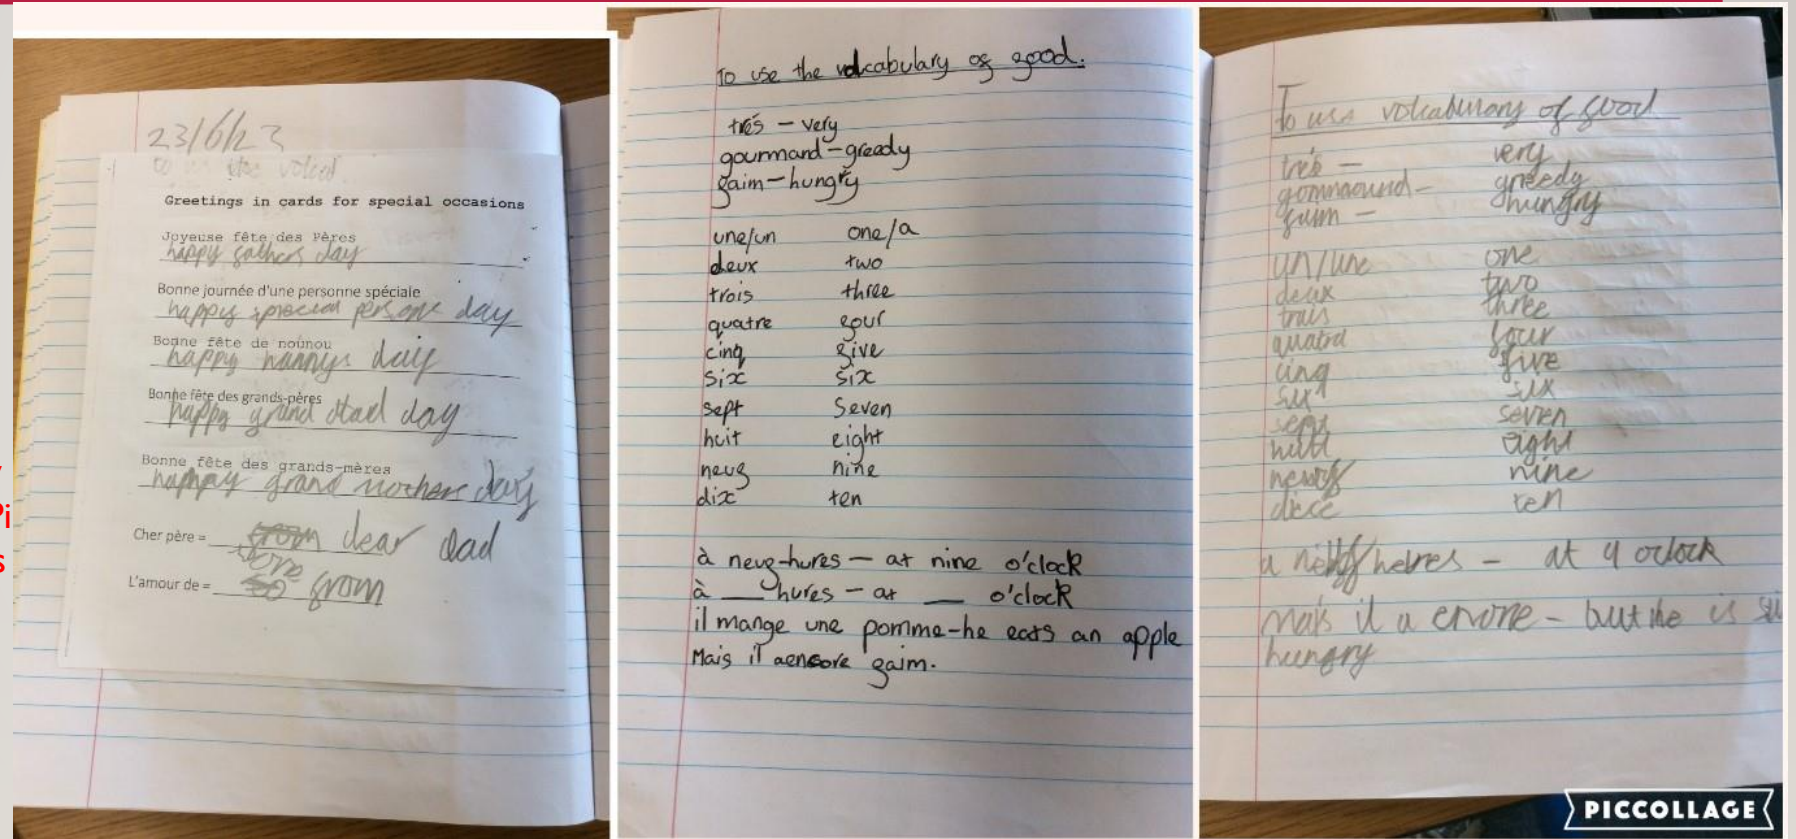 23/6/23
Greetings in cards for special occasions
Joyeuse fête des Pères
happy fathers day
Bonne journée d'une personne spéciale
happy special persons day
Bonne fête de nounou
happy nannys day
Bonne fête des grands-pères
happy grand dad day
Bonne fête des grands-mères
happy grand mothers day
Cher père = dear dad
L'amour de = love from
To use the volcabulary of good.
trés - very
gourmand - greedy
faim - hungry
une/un one/a
deux two
trois three
quatre four
cinq five
six six
sept seven
huit eight
neuf nine
dix ten
à neuf hures - at nine o'clock
à __ hures - at __ o'clock
il mange une pomme - he eats an apple
Mais il aencore faim.
To use volcabulary of good
trés - very
greedy
hungry
un/une one
deux two
trais three
quatre four
cinq five
six six
seven
eight
nine
dice ten
at 9 oclock
mais il a encore - but he is
hungry
Pi
s
PICCOLLAGE